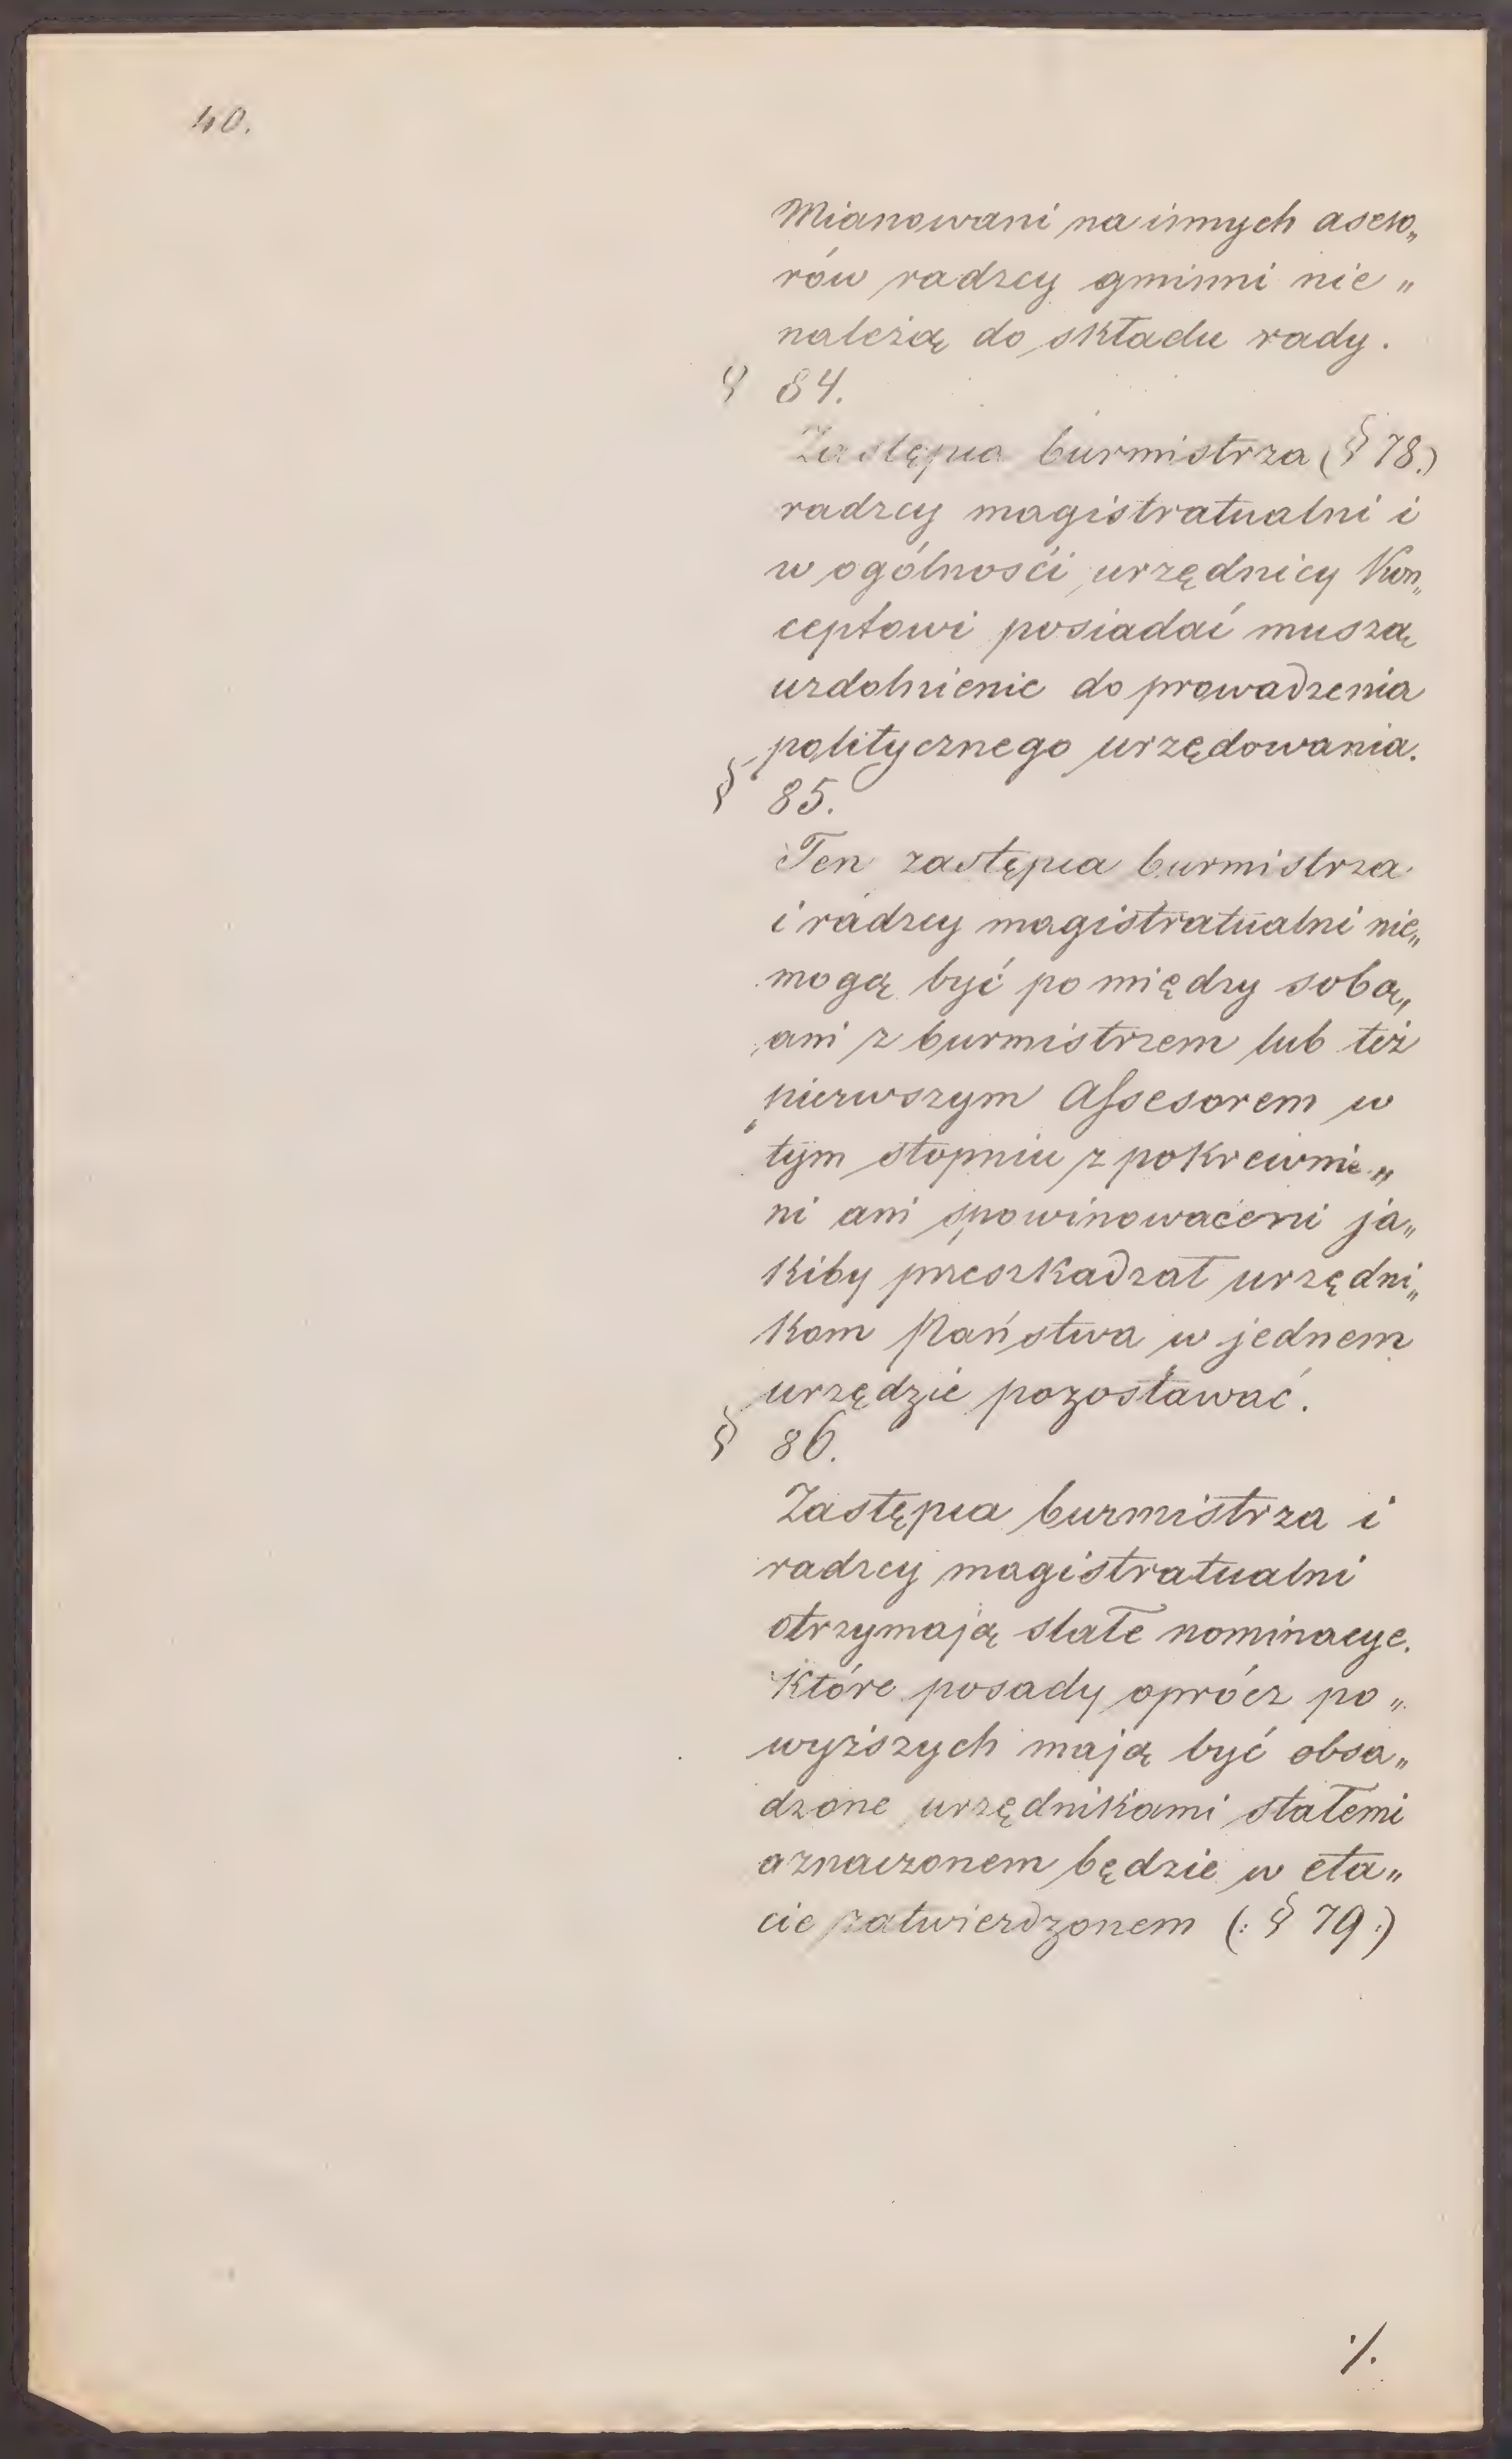 40.
Mianowani na innych aseso„
rów radzcy gminni nie „
należą do składu rady.
§ 84.
Zastępca burmistrza (§ 78.)
radzcy magistratualni i
w ogólności urzędnicy Kon„
ceptowi posiadać muszą
uzdolnienie do prowadzenia
politycznego urzędowania.
§ 85.
Ten zastępca burmistrza
i radzcy magistratualni nie„
mogą być pomiędzy sobą,
ani z burmistrzem lub też
pierwszym Assesorem w
tym stopniu z pokrewnie„
ni ani spowinowaceni ja„
kiby przeszkadzał urzędni„
kom Państwa w jednem
urzędzie pozostawać.
§ 86.
Zastępca burmistrza i
radzcy magistratualni
otrzymają stałe nominacye.
Które posady oprócz po„
wyższych mają być obsa„
dzone urzędnikami stałemi
oznaczonem będzie w eta„
cie zatwierdzonem (: § 79 :)
·/.